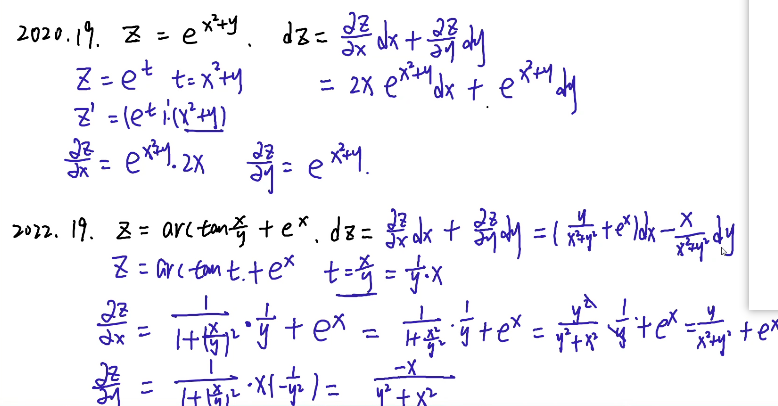 2020.19. z = e^{x²+y}. dz = ∂z/∂x dx + ∂z/∂y dy
z = e^t t = x²+y = 2x e^{x²+y} dx + e^{x²+y} dy
z' = (e^t)'·(x²+y)
∂z/∂x = e^{x²+y}·2x ∂z/∂y = e^{x²+y}.
2022. 19. z = arctan x/y + e^x. dz = ∂z/∂x dx + ∂z/∂y dy = (y/(x²+y²) + e^x)dx − x/(x²+y²) dy
z = arctan t. + e^x t = x/y = 1/y·x
∂z/∂x = 1/(1+(x/y)²)·1/y + e^x = 1/(1+x²/y²)·1/y + e^x = y²/(y²+x²) 1/y + e^x = y/(x²+y²) + e^x
∂z/∂y = 1/(1+(x/y)²)·x(−1/y²) = −x/(y²+x²)